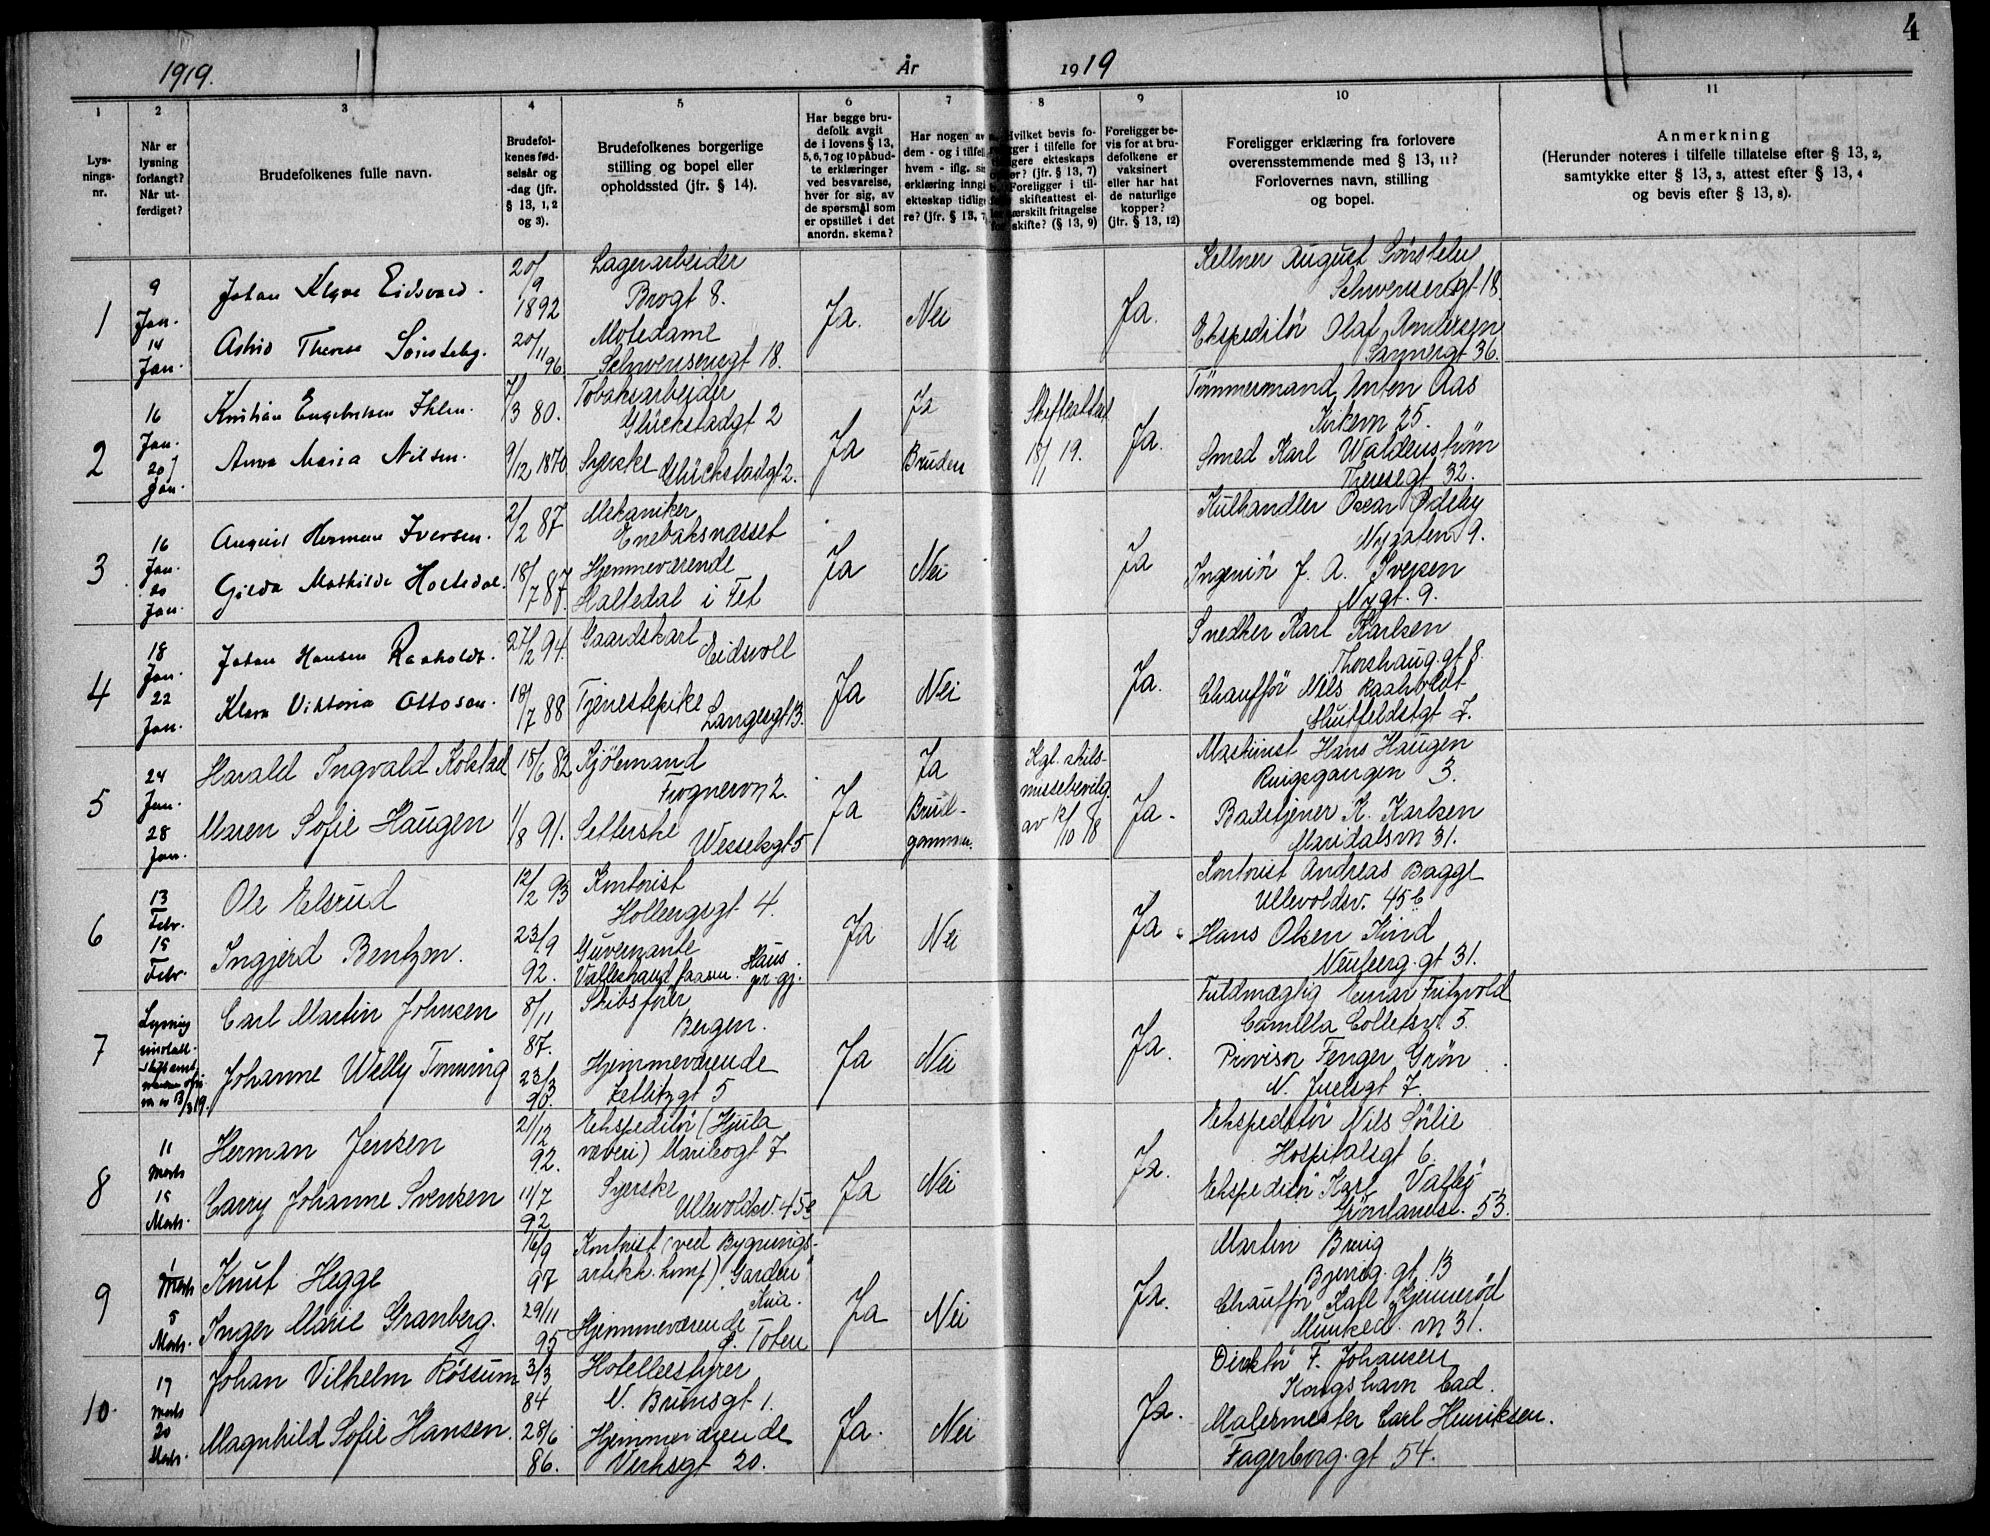 4
1919.
År
1919
1
2
3
4
5
6
7
8
9
10
11
Lys-
nings-
nr.
Når er
lysning
forlangt?
Når ut-
ferdiget?
Brudefolkenes fulle navn.
Brudefol-
kenes fød-
selsår og
-dag (jfr.
§ 13, 1, 2
og 3).
Brudefolkenes borgerlige
stilling og bopel eller
opholdssted (jfr. § 14).
Har begge bru-
defolk avgit
de i lovens § 13,
5, 6, 7 og 10 påbud-
te erklæringer
ved besvarelse,
hver for sig, av
de spørsmål som
er opstillet i det
anordn. skema?
Har nogen av
dem - og i tilfell
hvem - iflg.
erklæring inng
ekteskap tidlig
re? (jfr. § 13, 7
Hvilket bevis fo-
gger i tilfelle for
gere ekteskaps
r? (jfr. § 13, 7)
Foreligger i til-
skifteattest el-
ærskilt fritagelse
skifte? (§ 13, 9)
Foreligger be-
vis for at bru-
defolkene er
vaksinert
eller har hat
de naturlige
kopper?
(jfr. § 13, 12)
Foreligger erklæring fra forlovere
overensstemmende med § 13, 11?
Forlovernes navn, stilling
og bopel.
Anmerkning
(Herunder noteres i tilfelle tillatelse efter § 13, 2,
samtykke efter § 13, 3, attest efter § 13, 4
og bevis efter § 13, 8).
1
9
Jan.
14
Jan.
Johan Eidsvold.
Astrid Therese
20/9
1892
20/11
96.
Lagerarbeider
Brogt 8.
Motedame
Schwensensgt 18.
Ja.
Nei
Ja.
Kellner August
Schwensensgt 18.
Ekspeditør Olaf Andersen
Sannergt 36.
2
16
Jan.
20
Jan.
Kristian Engebretsen
Anna Maria Nilsen.
80.
9/12 1870
Tobaksarbeider
Glückstadgt 2
Syerske Glückstadgt 2.
Ja
Ja
Bruden
Skifteattest
18/1 19.
Ja.
Tømmermand Anton Aas
Kirkevn 25.
Smed Karl Waldenstrøm
Theresegt 32.
3
16
Jan.
20
Jan.
August Herman Iversen.
Mathilde
2/2 87
18/7 87.
Mekaniker
Enebaksnæsset
Hjemmeværende
i Fet
Ja
Nei
Ja
Kulhandler Oscar Ødeby
Nygaten 9.
Ingeniør J. A.
Nygt. 9.
4
18
Jan.
22
Jan.
Johan Hansen Raaholdt.
Klara Viktoria Ottosen.
27/2 94.
18/7 88
Gaardskarl
Eidsvoll
Tjenestepike
Langesgt 13.
Ja
Nei
Ja.
Snedker Karl Karlsen
Thorshaug.gt 8.
Chauffør Nils Raaholdt
Huitfeldtsgt 7.
5
24
Jan.
28
Jan.
Harald Ingvald Kolstad
Maren Sofie Haugen
15/6 82
1/8 91.
Kjøbmand
Frognervn 2.
Setterske
Wesselsgt 5
Ja
Ja
Brud-
gommen.
Kgl. skils-
missebevilg.
av 12/10 18
Ja.
Maskinist Hans Haugen
3.
Badetjener K. Karlsen
Maridalsvn 31.
6
13
Febr.
15
Febr.
Ole Elsrud
Ingjerd Bentzen.
12/2 93
23/9
92.
Kontorist
Holbergsgt 4.
Guvernante
Ja
Nei
Ja.
Kontorist Andreas Bagge
Ullevoldsv. 45 b
Hans Olsen Kind
Neuberg.gt 31.
7
Lysning
Carl Martin Johnsen
Johanne Welly
8/11
87.
23/3
Skibsfører
Bergen.
Hjemmeværende
Zetlitzgt 5
Ja
Nei
Ja.
Fuldmægtig Einar Fritzvold
Camilla Colletsv. 5.
Provisor Fenger Grøn
N. Juelsgt 7.
8
11
Marts
15
Marts.
Herman Jensen
Carry Johanne Svensen
21/12
92.
11/7
92
Ekspeditør (Hjula
væveri) Maribogt 7
Syerske
Ullevoldsv. 45
Ja
Nei
Ja.
Ekspeditør Nils Sølie
Hospitalsgt 6.
Ekspeditør Karl Valby
Grønlandsl. 53.
9
1
Marts
5
Marts.
Knut Hegge
Inger Marie Granberg.
16/9
97
29/11
95
Kontorist (ved Bygnings-
artikk. komp) "Garden"
Hjemmeværende
Ø. Toten
Ja
Nei
Ja.
Martin
Bjerreg.gt 13
Chauffør Karl
Munked. vn 31.
10.
17
Marts
20
Marts.
Johan Vilhelm Røssum
Magnhild Sofie Hansen.
3/3
84
28/6
86.
Hotelbestyrer
N. Brunsgt 1.
Hjemmeværende
Verksgt 20.
Ja.
Nei
Ja.
Direktør F. Johansen
Kongshavn bad.
Malermester Carl Henriksen.
Fagerborg.gt 54.